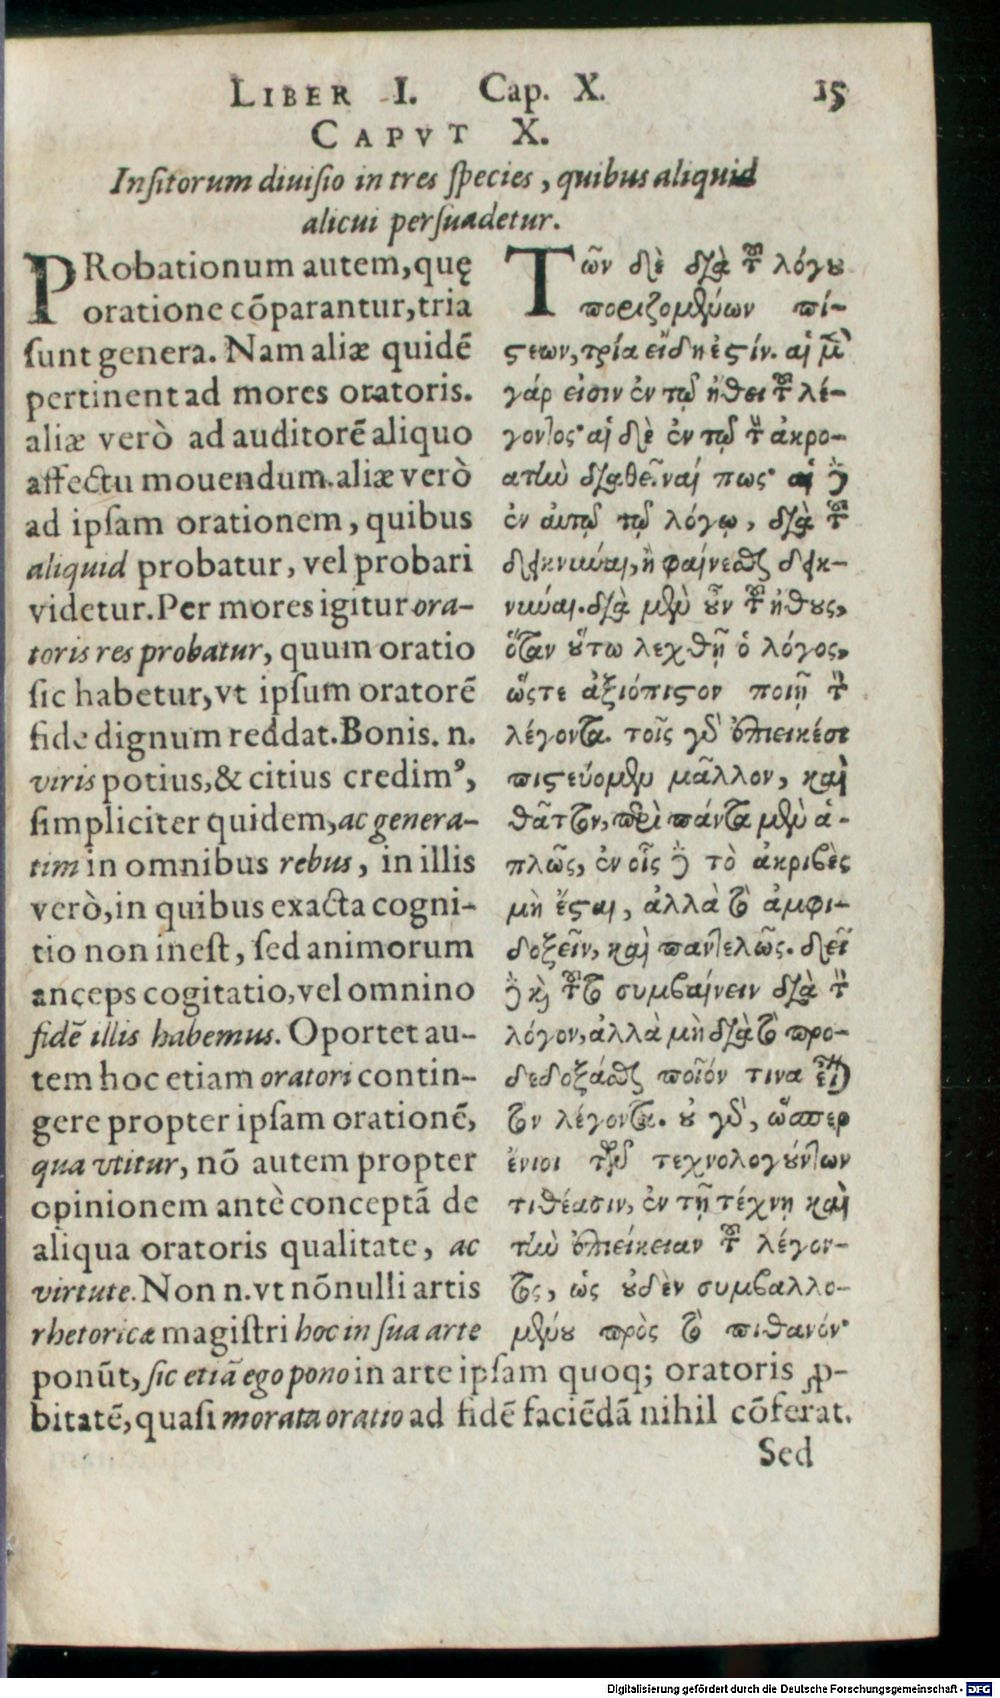 LIBER I. Cap. X. 15
CAPVT X.
Inſitorum diuiſio in tres ſpecies, quibus aliquid
alicui perſuadetur.
PRobationum autem, quę
oratione cõparantur, tria
ſunt genera. Nam aliæ quidẽ
pertinent ad mores oratoris.
aliæ verò ad auditorẽ aliquo
affectu mouendum. aliæ verò
ad ipſam orationem, quibus
aliquid probatur, vel probari
videtur. Per mores igitur ora-
toris res probatur, quum oratio
ſic habetur, vt ipſum oratorẽ
fide dignum reddat. Bonis. n.
viris potius, & citius credimꝰ,
ſimpliciter quidem, ac genera-
tim in omnibus rebus, in illis
verò, in quibus exacta cogni-
tio non ineſt, ſed animorum
anceps cogitatio, vel omnino
fidẽ illis habemus. Oportet au-
tem hoc etiam oratori contin-
gere propter ipſam orationẽ,
qua vtitur, nõ autem propter
opinionem antè conceptã de
aliqua oratoris qualitate, ac
virtute. Non n. vt nõnulli artis
rhetoricæ magiſtri hoc in ſua arte
ponũt, ſic etiã ego pono in arte ipſam quoq; oratoris ꝓ-
bitatẽ, quaſi morata oratio ad fidẽ faciẽdã nihil cõferat.
Τῶν δὲ διὰ τοῦ λόγου
ποριζομένων πί-
ϛεων, τρία εἴδη ἐϛίν. αἱ μὲν
γάρ εἰσιν ἐν τῷ ἤθει τοῦ λέ-
γοντος· αἱ δὲ ἐν τῷ τὸν ἀκρο-
ατὴν διαθεῖναί πως· αἱ δὲ
ἐν αὐτῷ τῷ λόγῳ, διὰ τοῦ
δεικνύναι, ἢ φαίνεσθαι δεικ-
νύναι. διὰ μὲν οὖν τοῦ ἤθους,
ὅταν οὕτω λεχθῇ ὁ λόγος,
ὥϛτε ἀξιόπιϛον ποιῇ τὸν
λέγοντα. τοῖς γὰρ ἐπιεικέσι
πιϛεύομεν μᾶλλον, καὶ
θᾶττον, περὶ πάντα μὲν ἁ-
πλῶς, ἐν οἷς δὲ τὸ ἀκριβὲς
μὴ ἔϛαι, ἀλλὰ τὸ ἀμφι-
δοξεῖν, καὶ παντελῶς. δεῖ
δὲ καὶ τοῦτο συμβαίνειν διὰ τὸν
λόγον, ἀλλὰ μὴ διὰ τὸ προ-
δεδοξάσθαι ποῖόν τινα εἶναι
τὸν λέγοντα. οὐ γὰρ, ὥσπερ
ἔνιοι τῶν τεχνολογούντων
τιθέασιν, ἐν τῇ τέχνῃ καὶ
τὴν ἐπιείκειαν τοῦ λέγον-
τος, ὡς οὐδὲν συμβαλλο-
μένου πρὸς τὸ πιθανόν·
Sed
Digitalisierung gefördert durch die Deutsche Forschungsgemeinschaft - DFG